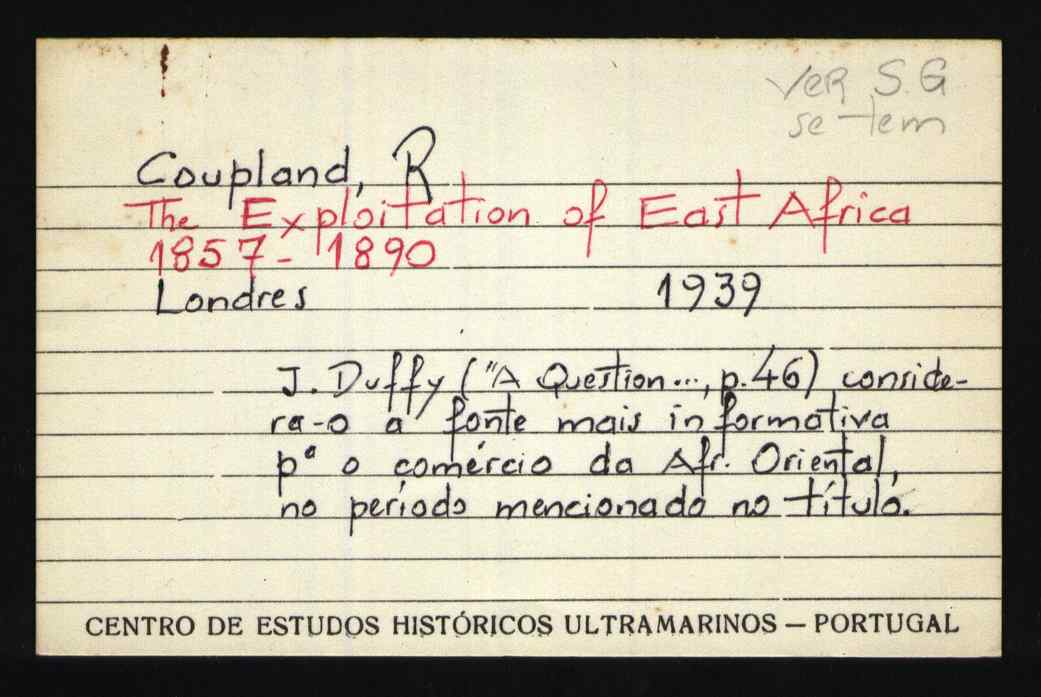 VER S.G
se tem
Coupland, R
The Exploitation of East Africa
1857-1890
Londres 1939
J. Duffy ("A Question..., p.46) conside-
ra-o a fonte mais informativa
pª o comércio da Afr. Oriental,
no período mencionado no título.
CENTRO DE ESTUDOS HISTÓRICOS ULTRAMARINOS — PORTUGAL